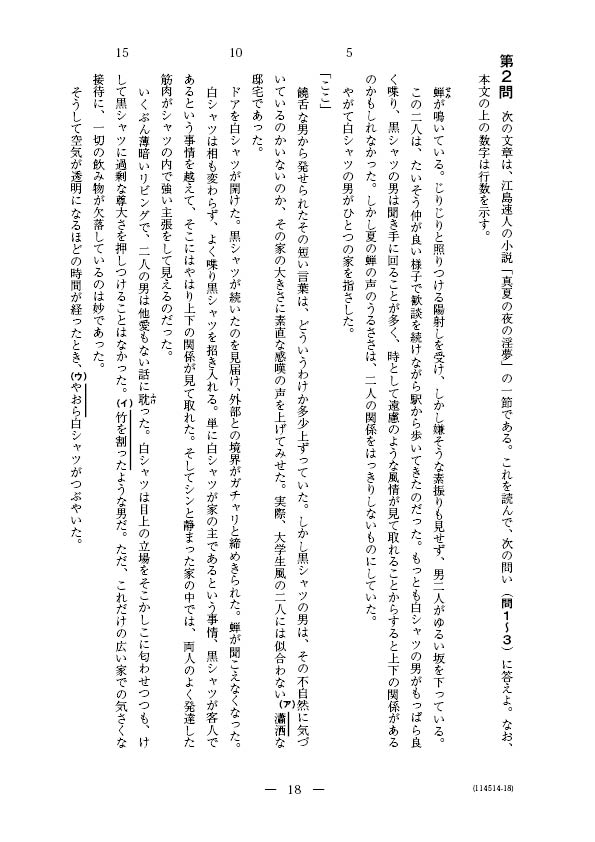 第2問　次の文章は、江島速人の小説「真夏の夜の淫夢」の一節である。これを読んで、次の問い（問1～3）に答えよ。なお、
本文の上の数字は行数を示す。
蟬が鳴いている。じりじりと照りつける陽射しを受け、しかし嫌そうな素振りも見せず、男二人がゆるい坂を下っている。
せみ
この二人は、たいそう仲が良い様子で歓談を続けながら駅から歩いてきたのだった。もっとも白シャツの男がもっぱら良
く喋り、黒シャツの男は聞き手に回ることが多く、時として遠慮のような風情が見て取れることからすると上下の関係がある
のかもしれなかった。しかし夏の蟬の声のうるささは、二人の関係をはっきりしないものにしていた。
5
やがて白シャツの男がひとつの家を指さした。
「ここ」
饒舌な男から発せられたその短い言葉は、どういうわけか多少上ずっていた。しかし黒シャツの男は、その不自然に気づ
いているのかいないのか、その家の大きさに素直な感嘆の声を上げてみせた。実際、大学生風の二人には似合わない(ア)瀟洒な
邸宅であった。
ドアを白シャツが開けた。黒シャツが続いたのを見届け、外部との境界がガチャリと締めきられた。蟬が聞こえなくなった。
10
白シャツは相も変わらず、よく喋り黒シャツを招き入れる。単に白シャツが家の主であるという事情、黒シャツが客人で
あるという事情を越えて、そこにはやはり上下の関係が見て取れた。そしてシンと静まった家の中では、両人のよく発達した
筋肉がシャツの内で強い主張をして見えるのだった。
いくぶん薄暗いリビングで、二人の男は他愛もない話に耽った。白シャツは目上の立場をそこかしこに匂わせつつも、け
ふけ
して黒シャツに過剰な尊大さを押しつけることはなかった。(イ)竹を割ったような男だ。ただ、これだけの広い家での気さくな
15
接待に、一切の飲み物が欠落しているのは妙であった。
そうして空気が透明になるほどの時間が経ったとき、(ウ)やおら白シャツがつぶやいた。
― 18 ―
(114514-18)